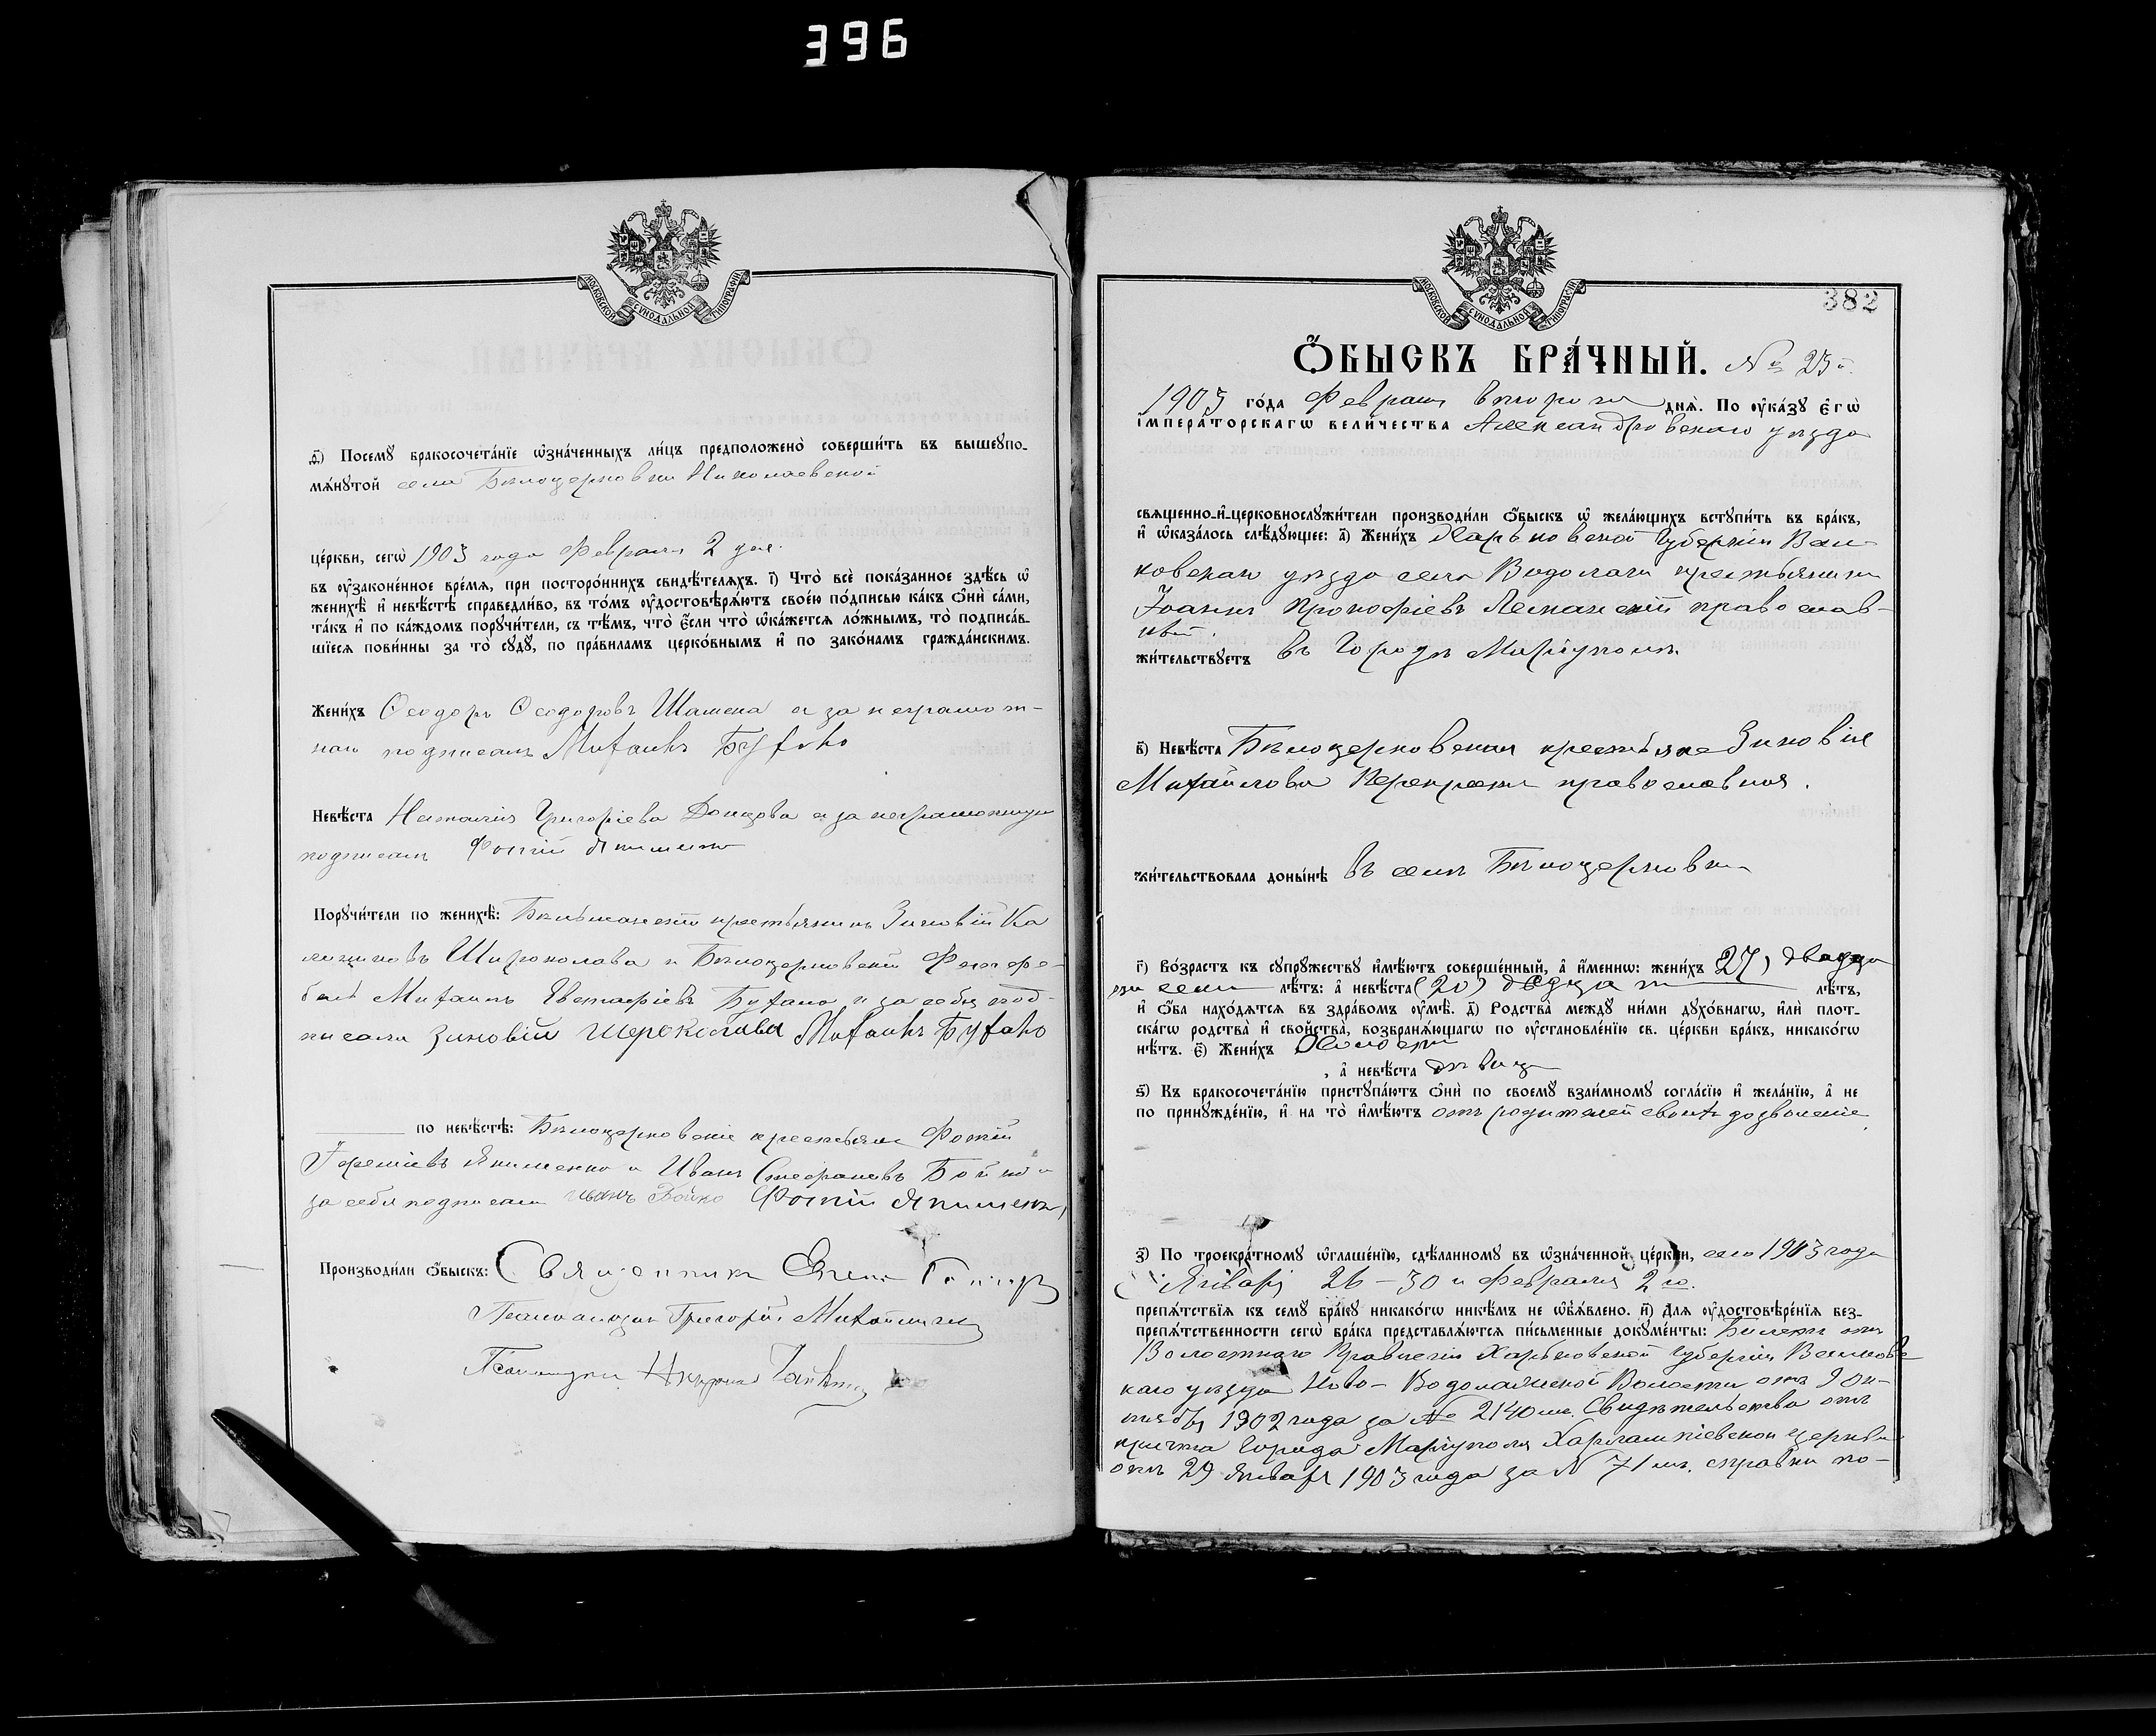 396
МОСКОВСКОЙ СѴНОДАЛЬНОЙ ТИПОГРАФІИ
ѳ҃) Посемꙋ̀ бракосочета́нїе ѡ҆зна́ченныхъ ли́цъ предположено̀ соверши́ть въ вышеꙋпо-
мѧ́нꙋтой села Бѣлоцерковки Николаевской
це́ркви, сегѡ̀ 1903 года Февраля 2 дня.
въ ᲂу҆зако́ненное вре́мѧ, при посторо́ннихъ свидѣ́телѧхъ. і҃) Что̀ всѐ пока́занное здѣ́сь ѡ҆
женихѣ̀ и҆ невѣ́стѣ справедли́во, въ то́мъ ᲂу҆достовѣрѧ́ютъ свое́ю по́дписью ка́къ ѻ҆нѝ са́ми,
та́къ и҆ по ка́ждомъ порꙋчи́тели, съ тѣ́мъ, что̀ є҆́сли что̀ ѡ҆ка́жетсѧ ло́жнымъ, то̀ подписа́в-
шїесѧ пови́нны за то̀ сꙋдꙋ̀, по пра́виламъ церко́внымъ и҆ по зако́намъ гражда́нскимъ.
Жени́хъ Ѳеодоръ Ѳеодоровъ а за неграмот-
наго подписалъ Михаилъ Бухало
Невѣ́ста Наталія Григоріева Донцова а за неграмотную
подписалъ Фотій Якименко
Порꙋчи́тели по женихѣ̀: крестьянинъ Зиновій Ка
Широколава и Бѣлоцерковскій
Михаилъ Евстафіевъ Бухало и за себя под-
писали Зиновій Широколава Михаилъ Бухало
по невѣ́стѣ: Бѣлоцерковскіе крестьяне Фотій
Якименко и Иванъ Стефановъ Бойко и
за себя подписали Иванъ Бойко Фотій Якименко
Производи́ли ѻ҆́быскъ: Священникъ
Псаломщикъ Григорій
Псаломщикъ
МОСКОВСКОЙ СѴНОДАЛЬНОЙ ТИПОГРАФІИ
382
Ѻ҆́БЫСКЪ БРА́ЧНЫЙ. № 23й.
1903 го́да Февраля второго днѧ̀. По ᲂу҆ка́зꙋ є҆гѡ̀
і҆мпера́торскагѡ вели́чества Александровскаго уѣзда
свѧщенно-и҆-церковнослꙋжи́тели производи́ли ѻ҆́быскъ ѡ҆ жела́ющихъ встꙋпи́ть въ бра́къ,
и҆ ѡ҆каза́лось слѣ́дꙋющее: а҃) Жени́хъ Харьковской Губерніи Вал-
ковскаго уѣзда села Водолаги крестьянинъ
Іоаннъ Прокофіевъ православ-
ный.
жи́тельствꙋетъ въ Городѣ Маріуполѣ
в҃) Невѣ́ста Бѣлоцерковская крестьянка Зиновія
Михайлова православная.
жи́тельствовала доны́нѣ въ селѣ Бѣлоцерковкѣ
г҃) Во́зрастъ къ сꙋпрꙋ́жествꙋ и҆мѣ́ютъ соверше́нный, а҆ и҆́менно: жени́хъ 27, двадца
ти семи лѣ́тъ: а҆ невѣ́ста (20) двадцати лѣ́тъ,
и҆ ѻ҆́ба нахо́дѧтсѧ въ здра́вомъ ᲂу҆мѣ̀. д҃) Родства̀ междꙋ̀ ни́ми дꙋхо́внагѡ, и҆лѝ плот-
ска́гѡ родства̀ и҆ сво́йства̀, возбранѧ́ющагѡ по ᲂу҆становле́нїю св. це́ркви бра́къ, никако́гѡ
нѣ́тъ. є҃) Жени́хъ Холостъ
, а҆ невѣ́ста дѣвица
ѕ҃) Къ бракосочета́нїю пристꙋпа́ютъ ѻ҆нѝ по своемꙋ̀ взаи́мномꙋ согла́сїю и҆ жела́нїю, а҆ не
по принꙋжде́нїю, и҆ на то̀ и҆мѣ́ютъ отъ родителей своихъ дозволеніе.
з҃) По троекра́тномꙋ ѡ҆глаше́нїю, сдѣ́ланномꙋ въ ѡ҆зна́ченной це́ркви, сего 1903 года
Января 26 – 30 и Февраля 2 го.
препѧ́тствїѧ къ семꙋ̀ бра́кꙋ никако́гѡ никѣ́мъ не ѡ҆б̾ѧ́влено. и҃) Длѧ ᲂу҆достовѣре́нїѧ без-
препѧ́тственности сегѡ̀ бра́ка представлѧ́ютсѧ пи́сьменные докꙋме́нты: Билетъ отъ
Волостнаго Правленія Харьковской Губерніи Валковс
каго уѣзда Ново-Водолажской Волости отъ 9 Ок-
тября 1902 года за № 2140 ме. Свидѣтельство отъ
причта Города Маріуполя Харлампіевской церкви
отъ 29 Января 1903 года за № 71 мъ. справки по-